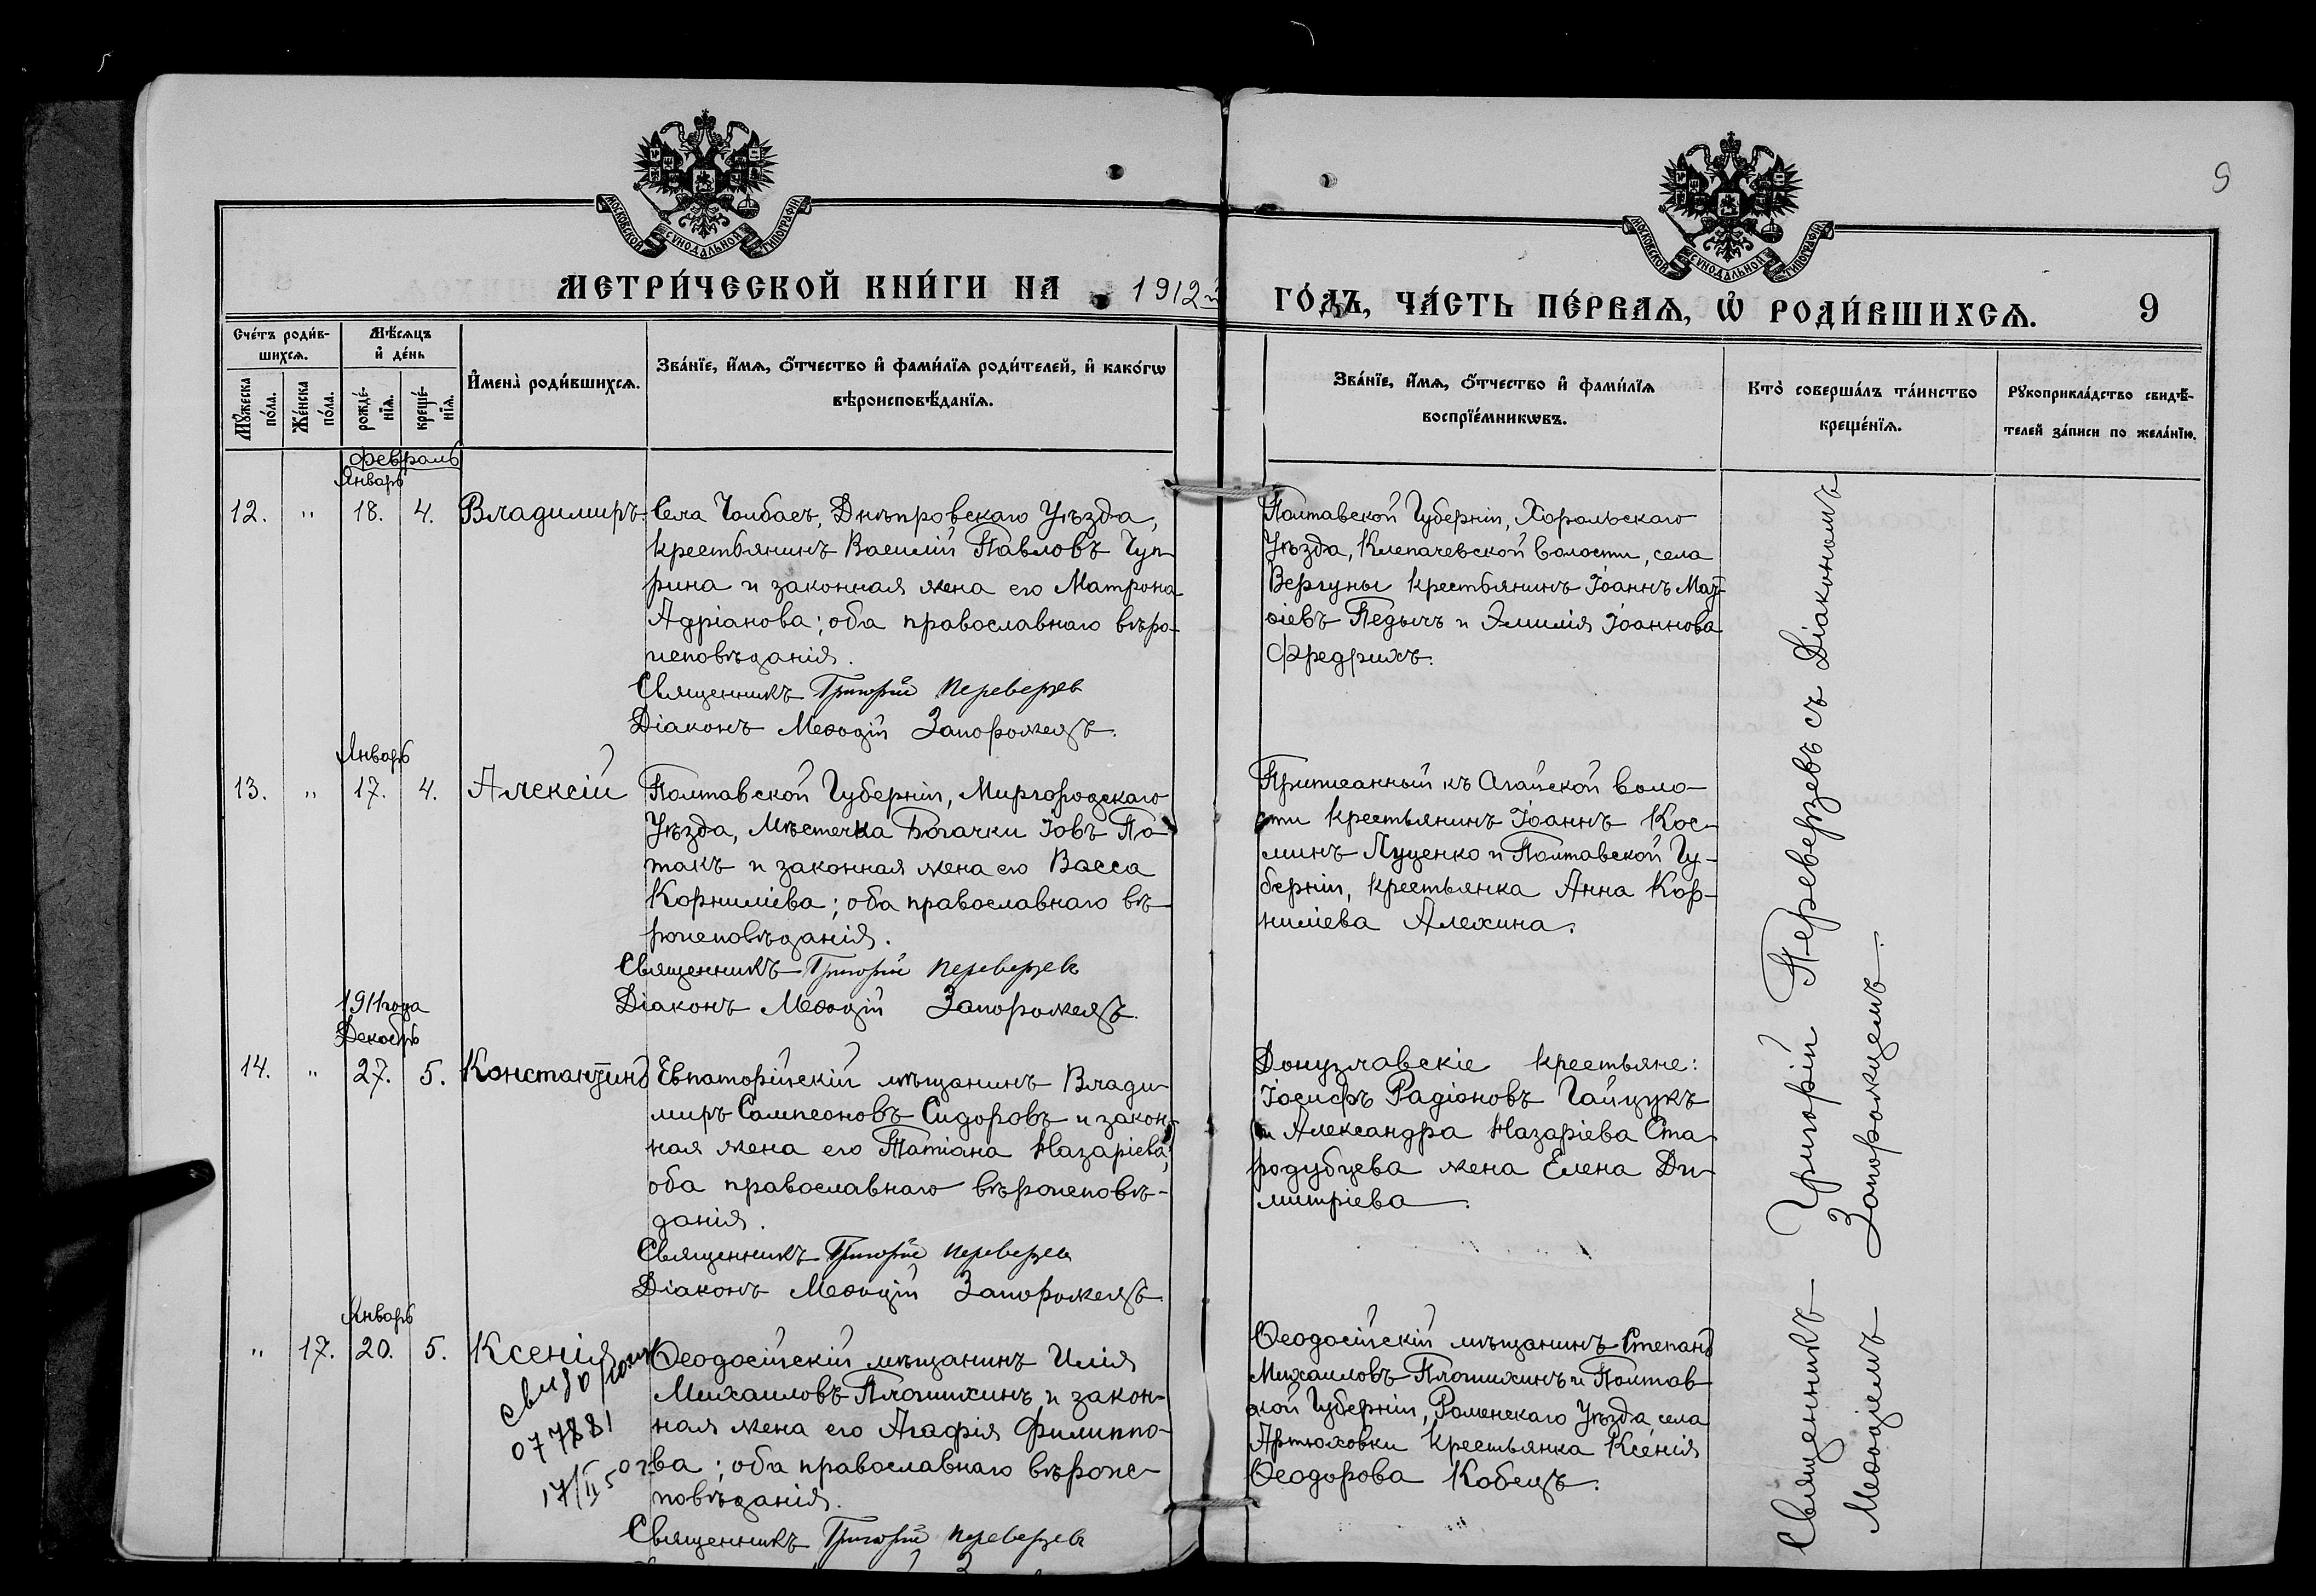 МОСКОВСКОЙ СѴНОДАЛЬНОЙ ТИПОГРАФІИ
МОСКОВСКОЙ СѴНОДАЛЬНОЙ ТИПОГРАФІИ
9
МЕТРИ́ЧЕСКОЙ КНИ́ГИ НА 1912й
ГО́ДЪ, ЧА́СТЬ ПЕ́РВАѦ, Ѡ҆ РОДИ́ВШИХСѦ. 9
Сче́тъ роди́в-
шихсѧ.
Мѣ́сѧцъ
и҆ де́нь
Мꙋ́жеска
по́ла.
Же́нска
по́ла.
рожде́-
нїѧ.
креще́-
нїѧ.
И҆мена̀ роди́вшихсѧ.
Зва́нїе, и҆́мѧ, ѻ҆́тчество и҆ фами́лїѧ роди́телей, и҆ како́гѡ
вѣроисповѣ́данїѧ.
Зва́нїе, и҆́мѧ, ѻ҆́тчество и҆ фами́лїѧ
воспрїе́мникѡвъ.
Кто̀ соверша́лъ та́инство
креще́нїѧ.
Рꙋкоприкла́дство свидѣ́-
телей за́писи по жела́нїю.
Февраль
Январь
12. " 18. 4. Владимиръ.
Села Чолбасъ, Днѣпровскаго Уѣзда,
крестьянинъ Василій Павловъ Чуп-
рина и законная жена его Матрона
Адріанова; оба православнаго вѣро-
исповѣданія.
Священникъ Григорій Переверзев
Діаконъ Меѳодій Запорожецъ.
Полтавской Губерніи, Хорольскаго
Уѣзда, Клепачевской волости, села
Вергуны крестьянинъ Іоаннъ Мат-
ѳіевъ Педычъ и Эмилія Іоаннова
Фредрихъ.
Январь
13. " 17. 4. Алексій
Полтавской Губерніи, Миргородскаго
Уѣзда, Мѣстечка Богачки Іовъ По-
такъ и законная жена его Васса
Корниліева; оба православнаго вѣ-
роисповѣданія.
Священникъ Григорій Переверзев
Діаконъ Меѳодій Запорожецъ.
Приписанный къ Агайской воло-
сти крестьянинъ Іоаннъ Кос-
минъ Луценко и Полтавской Гу-
берніи, крестьянка Анна Кор-
ниліева Алехина.
1911 года
Декабрь
14. " 27. 5. Константинъ
Евпаторійскій мѣщанинъ Влади-
миръ Сампсоновъ Сидоровъ и закон-
ная жена его Татіана Назаріева;
оба православнаго вѣроисповѣ-
данія.
Священникъ Григорій Переверзев
Діаконъ Меѳодій Запорожецъ
Донузлавскіе крестьяне:
Іосифъ Радіоновъ Гайцукъ
и Александра Назаріева Ста-
родубцева жена Елена Ди-
митріева.
Январь
" 17. 20. 5. Ксенія
077881
Ѳеодосійскій мѣщанинъ Илія
Михаиловъ Плотихинъ и закон-
ная жена его Агафія Филиппо-
ва; оба православнаго вѣроис-
повѣданія.
Священникъ Григорій Переверзев
Ѳеодосійскій мѣщанинъ Степанъ
Михаиловъ Плотихинъ и Полтав-
ской Губерніи, Роменскаго Уѣзда села
Артюховки крестьянка Ксенія
Ѳеодорова Кобецъ.
Священникъ Григорій Переверзевъ съ Діакономъ
Меѳодіемъ Запорожцемъ.